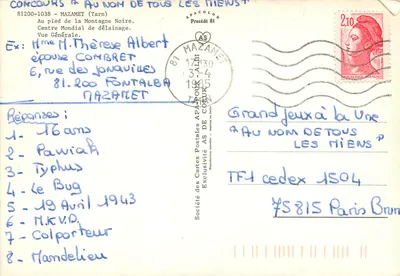 CONCOURS " AU NOM DE TOUS LES MIENS "
81200-1038 - MAZAMET (Tarn)
Au pied de la Montagne Noire.
Centre Mondial de délainage.
Vue Générale.
Ex: Mme M. Thérèse Albert
épouse COMBRET
6, rue des jonquilles
81.200 PONTALBA
MAZAMET
Réponses:
1- 16 ans
2- Pawiak
3- Typhus
4- Le Bug
5- 19 Avril 1943
6- N.K.V.D.
7- Colporteur
8- Mandelieu
APA-POUX
Procédé 81
AS
81 MAZAMET
17-30
3-4
1985
TARN
2,10
Société des Cartes Postales APA-POUX ALBI
Exclusivité AS DE COEUR
Grand Jeux à la Une
" AU NOM DE TOUS
LES MIENS "
TF1 cedex 1504
75815 Paris Brun